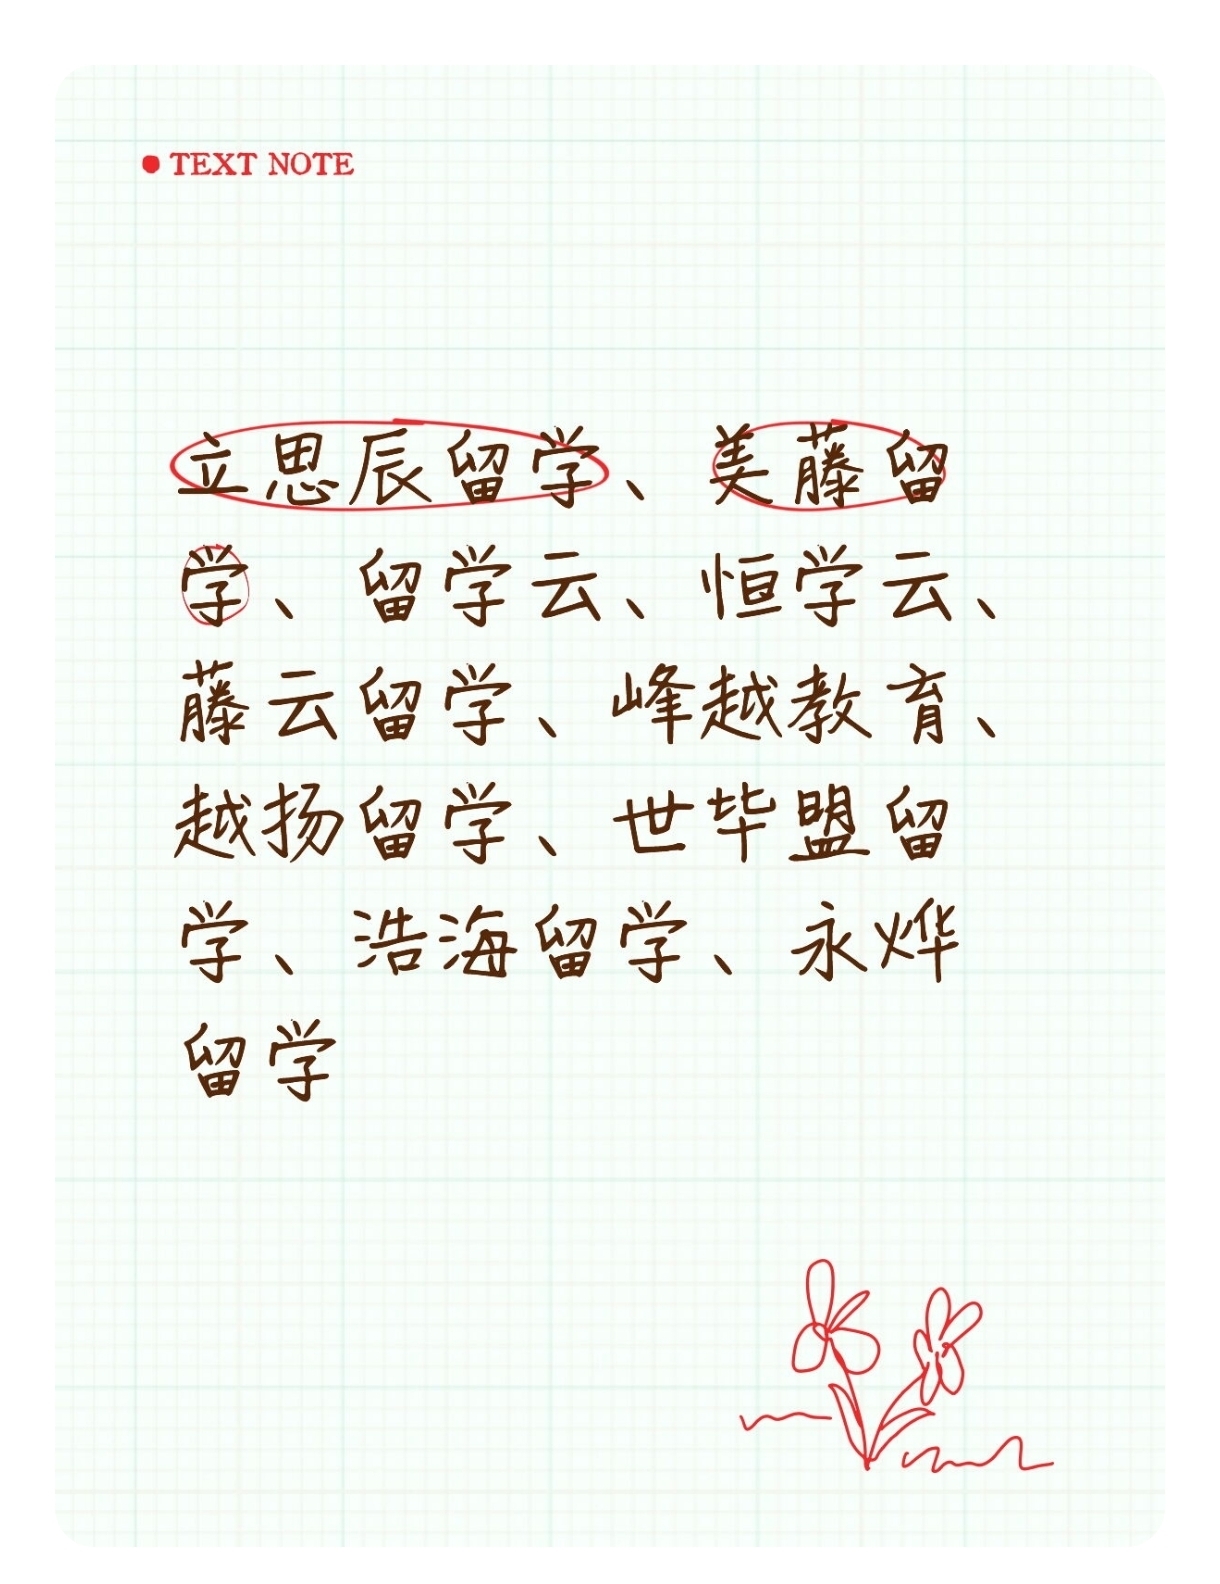 TEXT NOTE
立思辰留学、美藤留
学、留学云、恒学云、
藤云留学、峰越教育、
越扬留学、世毕盟留
学、浩海留学、永烨
留学